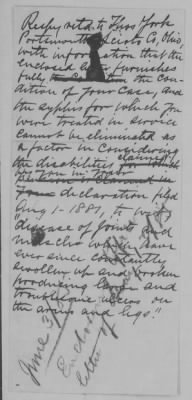 Respy. retd. to Thos York
Portsmouth Scioto Co, Ohio
with information that the
enclosed furnishes
fully the con-
dition of your case, and
the syphilis for which you
were treated in service
cannot be eliminated as
a factor in considering
the disabilities claimed
by you in your
declaration filed
Aug 1 - 1881, to wit
"disease of joints and
muscles which have
ever since constantly
swollen up and broken
producing large and
troublesome ulcers on
the arms and legs."
June 3
Endorse
letter of